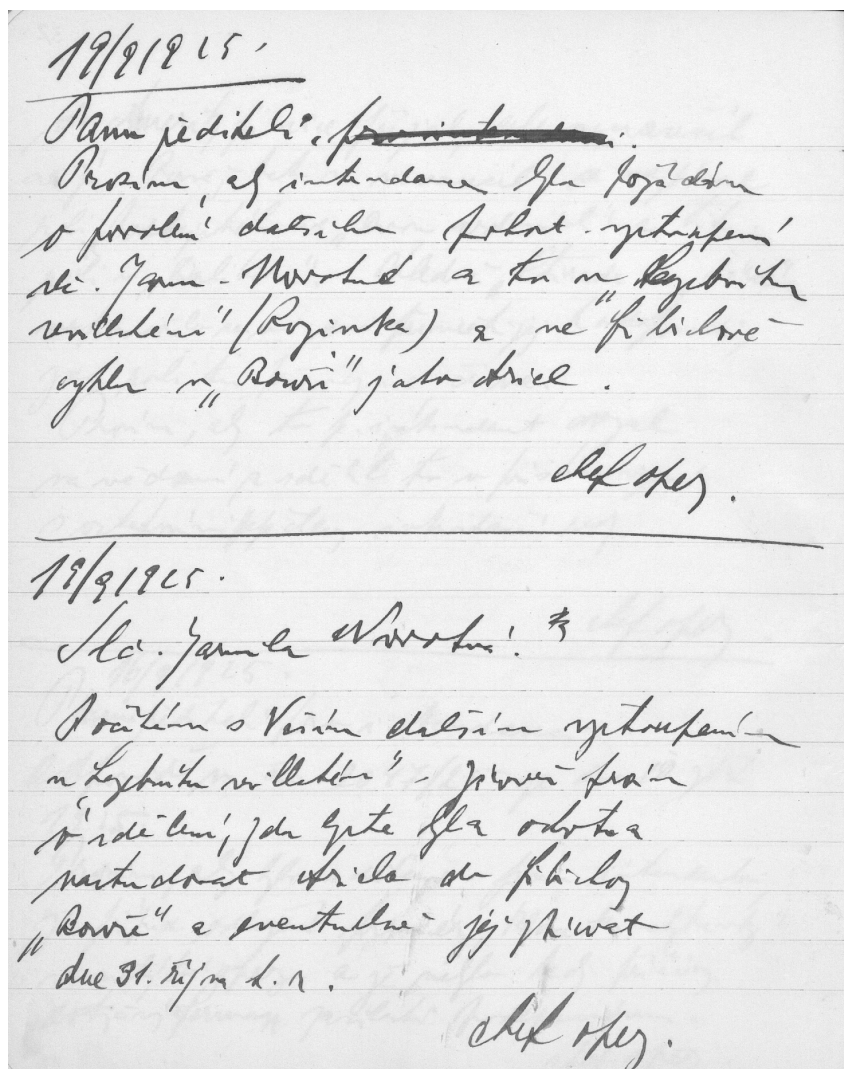 19/9 1925.
Panu řediteli,
Prosím, aby intendance byla požádána
o povolení dalšího pohost. vystoupení
slč. Jarm. Novotné a to v „Lazebníku
sevillském" (Rozinka) a ve Fibichově
cyklu v „Bouři" jako Ariel.
chef opery.
19/9 1925.
Slč. Jarmila Novotná!
Počítám s Vaším dalším vystoupením
v „Lazebníku sevillském" - zároveň prosím
o sdělení, zda byste byla ochotna
nastudovat Ariela do Fibichovy
„Bouře" a eventuelně jej zpívat
dne 31. října t. r.
chef opery.